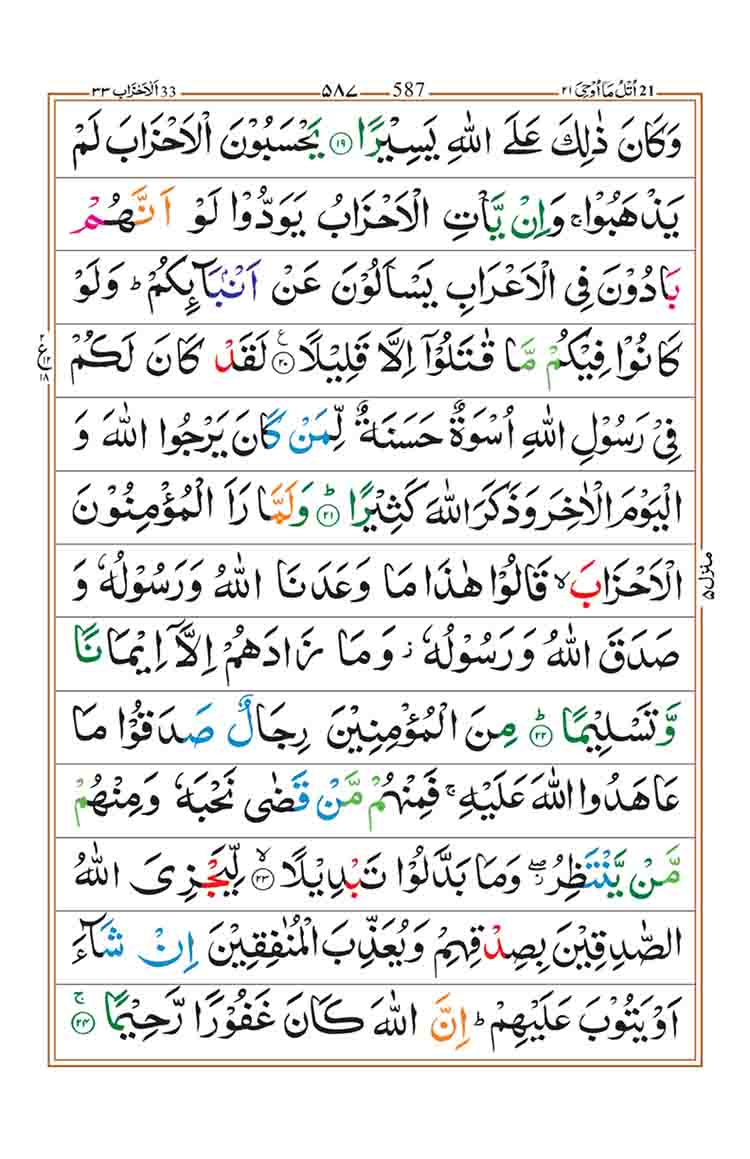 اُتْلُ مَاۤ اُوْحِیَ ٢١ 21 587 ٥٨٧ اَلْاَحْزَاب ٣٣ 33
وَكَانَ ذٰلِكَ عَلَى اللّٰهِ یَسِیْرًا ۝١٩ یَحْسَبُوْنَ الْاَحْزَابَ لَمْ
یَذْهَبُوْا ۚ وَاِنْ یَّاْتِ الْاَحْزَابُ یَوَدُّوْا لَوْ اَنَّهُمْ
بَادُوْنَ فِی الْاَعْرَابِ یَسْاَلُوْنَ عَنْ اَنْۢبَآىِٕكُمْ ؕ وَلَوْ
كَانُوْا فِیْكُمْ مَّا قٰتَلُوْۤا اِلَّا قَلِیْلًا ۝٢٠ ع لَقَدْ كَانَ لَكُمْ
ع ٢ ١٢ ١٨
فِیْ رَسُوْلِ اللّٰهِ اُسْوَةٌ حَسَنَةٌ لِّمَنْ كَانَ یَرْجُوا اللّٰهَ وَ
الْیَوْمَ الْاٰخِرَ وَذَكَرَ اللّٰهَ كَثِیْرًا ۝٢١ؕ وَلَمَّا رَاَ الْمُؤْمِنُوْنَ
الْاَحْزَابَ ۙ قَالُوْا هٰذَا مَا وَعَدَنَا اللّٰهُ وَرَسُوْلُهٗ وَ
منزل ٥
صَدَقَ اللّٰهُ وَرَسُوْلُهٗ ؗ وَمَا زَادَهُمْ اِلَّاۤ اِیْمَانًا
وَّتَسْلِیْمًا ۝٢٢ؕ مِنَ الْمُؤْمِنِیْنَ رِجَالٌ صَدَقُوْا مَا
عَاهَدُوا اللّٰهَ عَلَیْهِ ۚ فَمِنْهُمْ مَّنْ قَضٰی نَحْبَهٗ وَمِنْهُمْ
مَّنْ یَّنْتَظِرُ ۖؗ وَمَا بَدَّلُوْا تَبْدِیْلًا ۝٢٣ۙ لِّیَجْزِیَ اللّٰهُ
الصّٰدِقِیْنَ بِصِدْقِهِمْ وَیُعَذِّبَ الْمُنٰفِقِیْنَ اِنْ شَآءَ
اَوْ یَتُوْبَ عَلَیْهِمْ ؕ اِنَّ اللّٰهَ كَانَ غَفُوْرًا رَّحِیْمًا ۝٢٤ۚ